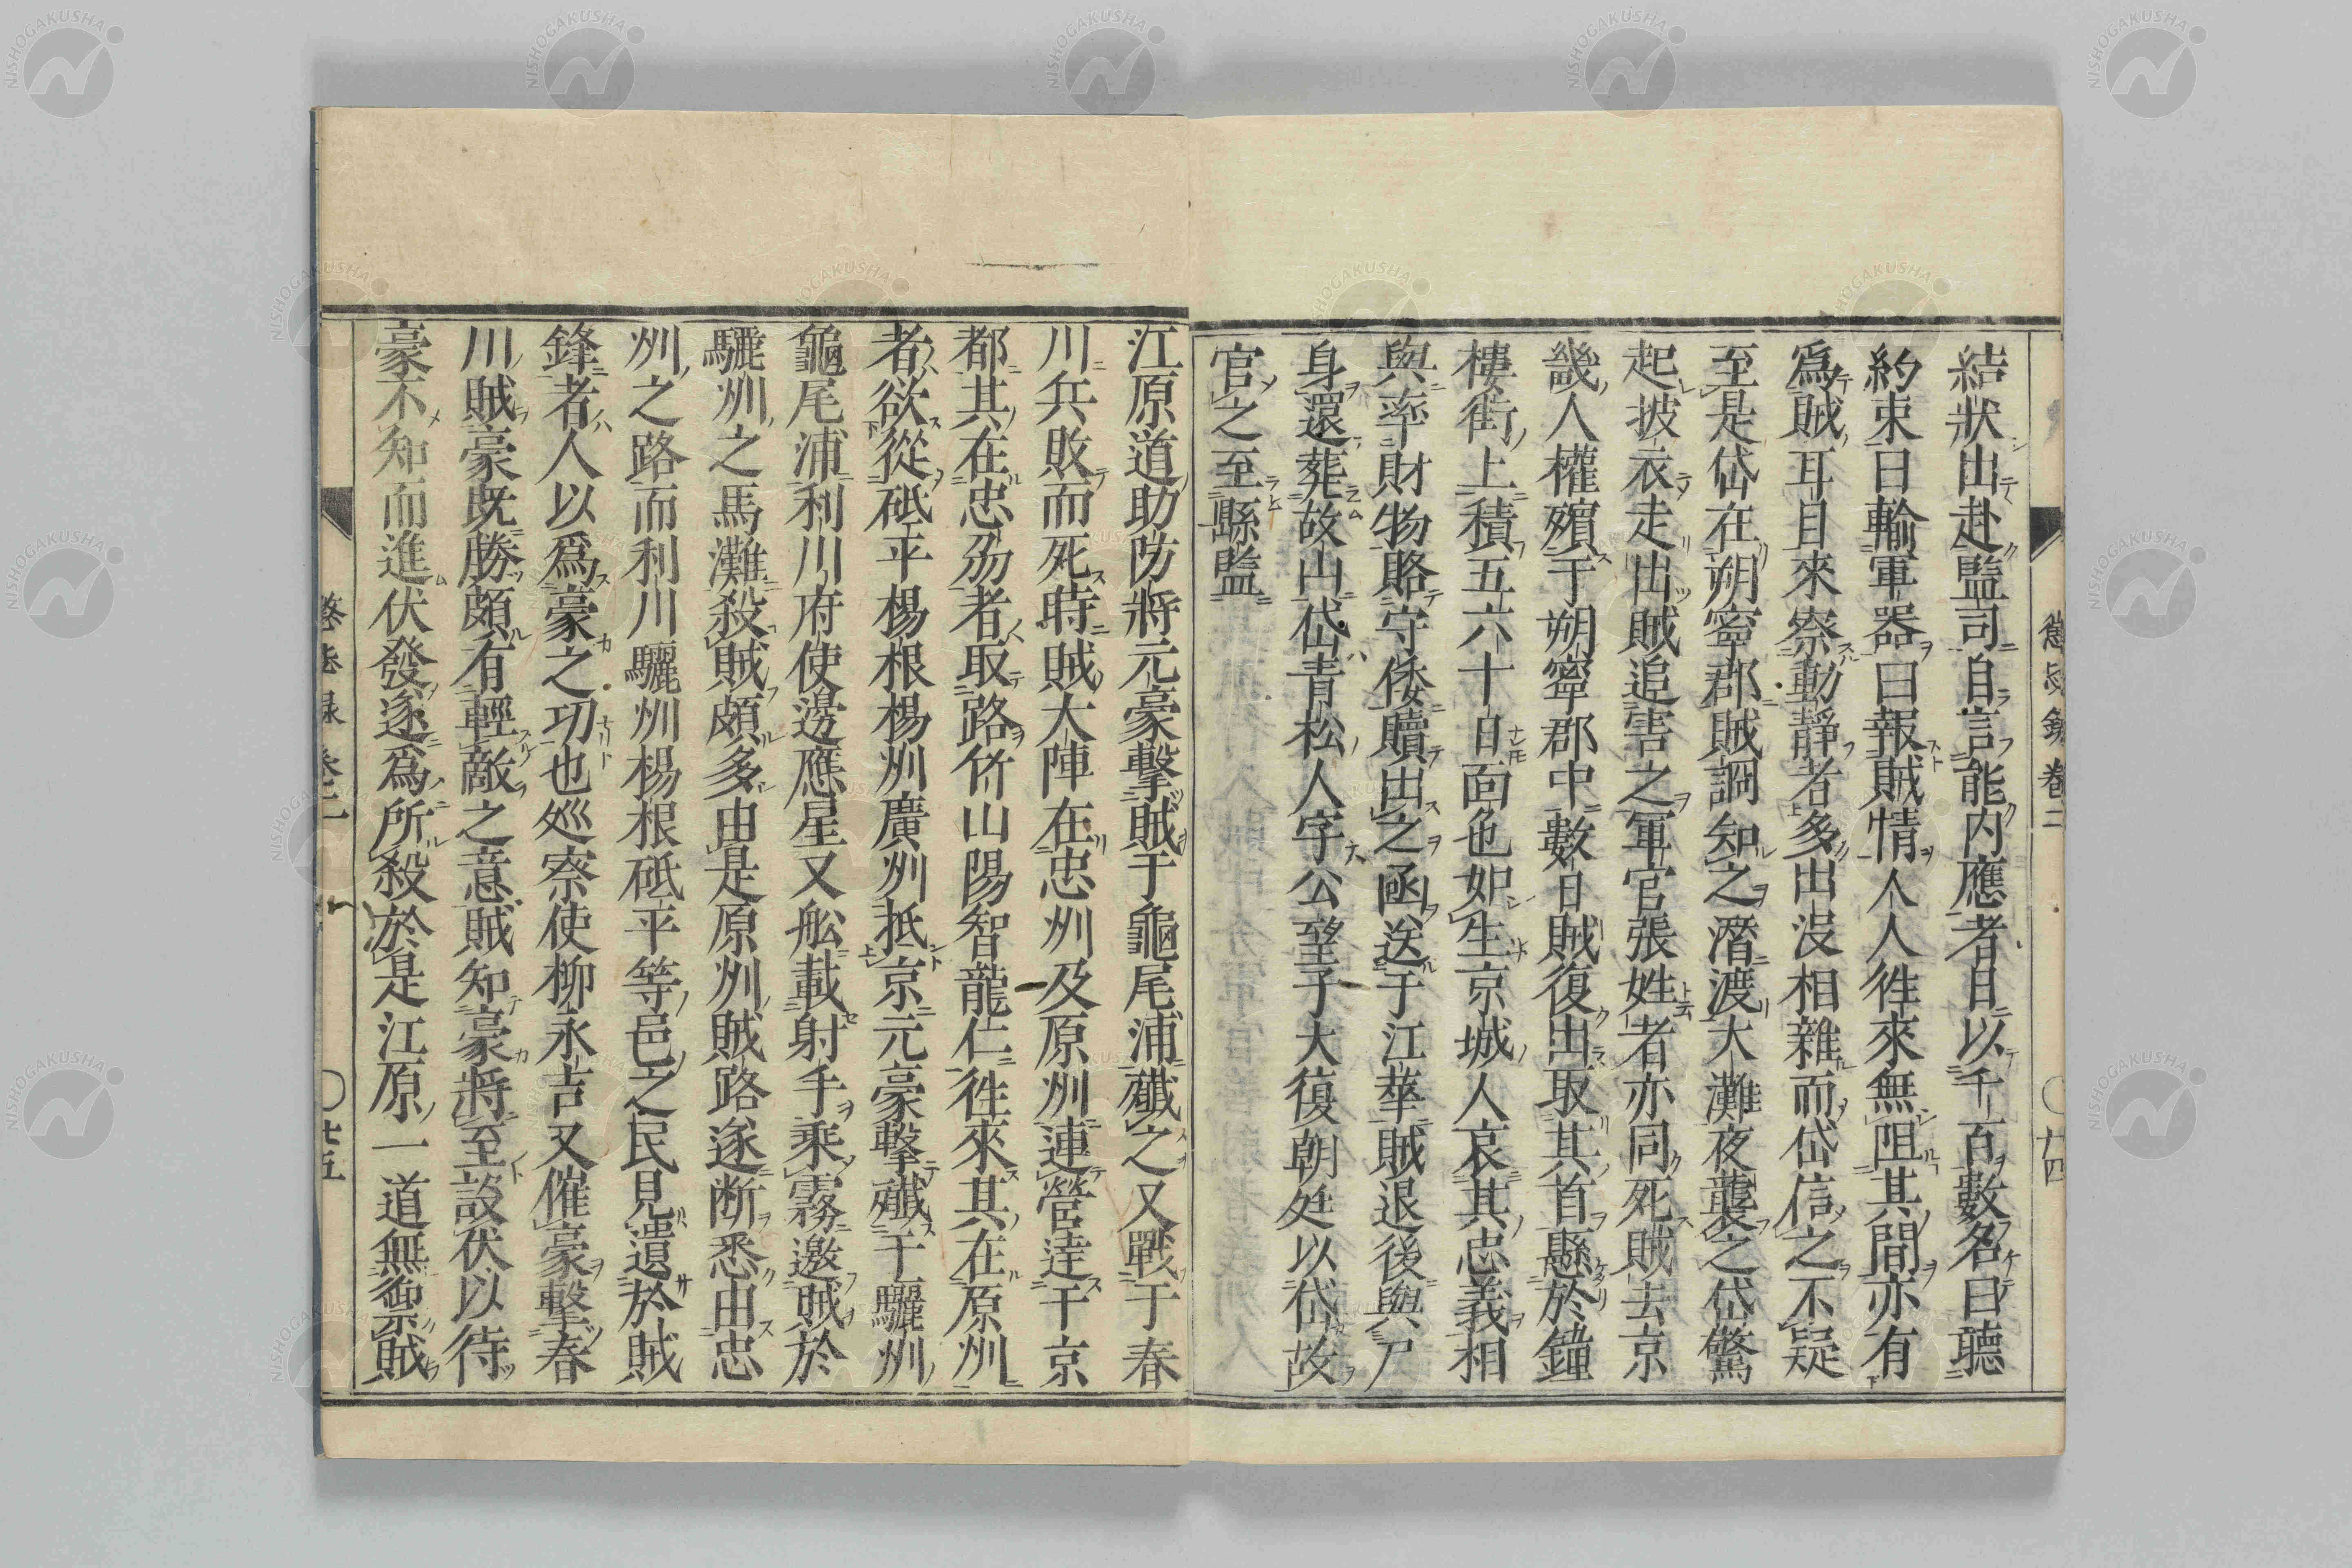 結狀出赴監司自言能内應者日以千百數名曰聽
約束曰輸軍器曰報賊情人人徃來無阻其間亦有
爲賊耳目來察動靜者多出没相雜而岱信之不疑
至是岱在朔寧郡賊詗知之潛渡大灘夜襲之岱驚
起披衣走出賊追害之軍官張姓者亦同死賊去京
畿人權殯于朔寧郡中數日賊復出取其首懸於鐘
樓街上積五六十日面色如生京城人哀其忠義相
與率財物賂守倭贖出之函送于江華賊退後與尸
身還葬故山岱青松人字公望子大復朝廷以岱故
官之至縣監
江原道助防將元豪擊賊于龜尾浦殲之又戰于春
川兵敗而死時賊大陣在忠州及原州連營達于京
都其在忠州者取路竹山陽智龍仁徃來其在原州
者欲從砥平楊根楊州廣州抵京元豪擊殲于驪州
龜尾浦利川府使邊應星又舩載射手乘霧邀賊於
驪州之馬灘殺賊頗多由是原州賊路遂断悉由忠
州之路而利川驪州楊根砥平等邑之民見遺於賊
鋒者人以爲豪之功也巡察使柳永吉又催豪擊春
川賊豪既勝頗有輕敵之意賊知豪將至設伏以待
豪不知而進伏發遂爲所殺於是江原一道無禦賊
懲毖錄卷二
廿四
懲毖録卷二
廿五
NISHOGAKUSHA